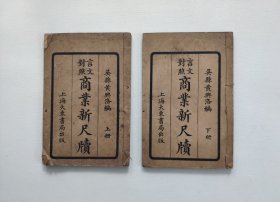 吳縣黃興洛編 上册
言文對照
商業新尺牘
上海大東書局出版
吳縣黃興洛編 下册
言文對照
商業新尺牘
上海大東書局出版